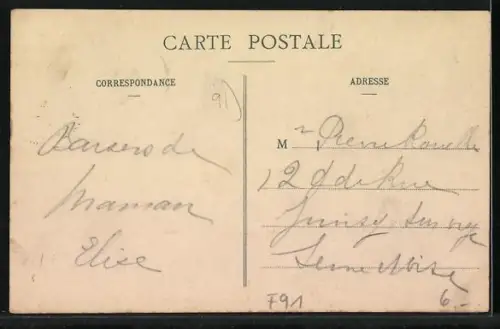 CARTE POSTALE
CORRESPONDANCE
ADRESSE
91
Baisers de
Maman
Elise
Mr Pierre
12 Gde Rue
Juvisy sur Orge
Seine et Oise
F91
6.-